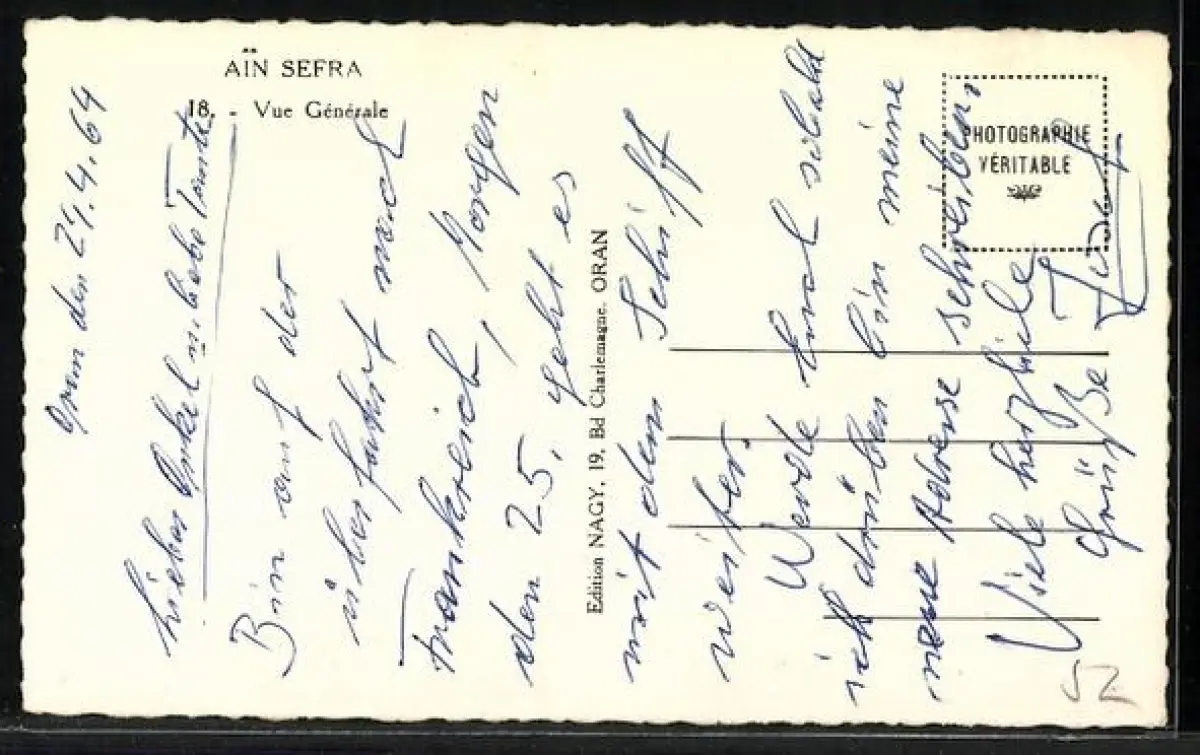 AÏN SEFRA
18. - Vue Générale
Edition NAGY, 19, Bd Charlemagne, ORAN
PHOTOGRAPHIE
VÉRITABLE
Oran den 24.4.64
Lieber Onkel u. liebe Tante
Bin auf der
überfahrt nach
Frankreich, Morgen
den 25, geht es
mit dem Schiff
weiter.
Werde Euch sobald
ich drüben bin meine
neue Adresse schreiben,
Viele herzliche
Grüße
52